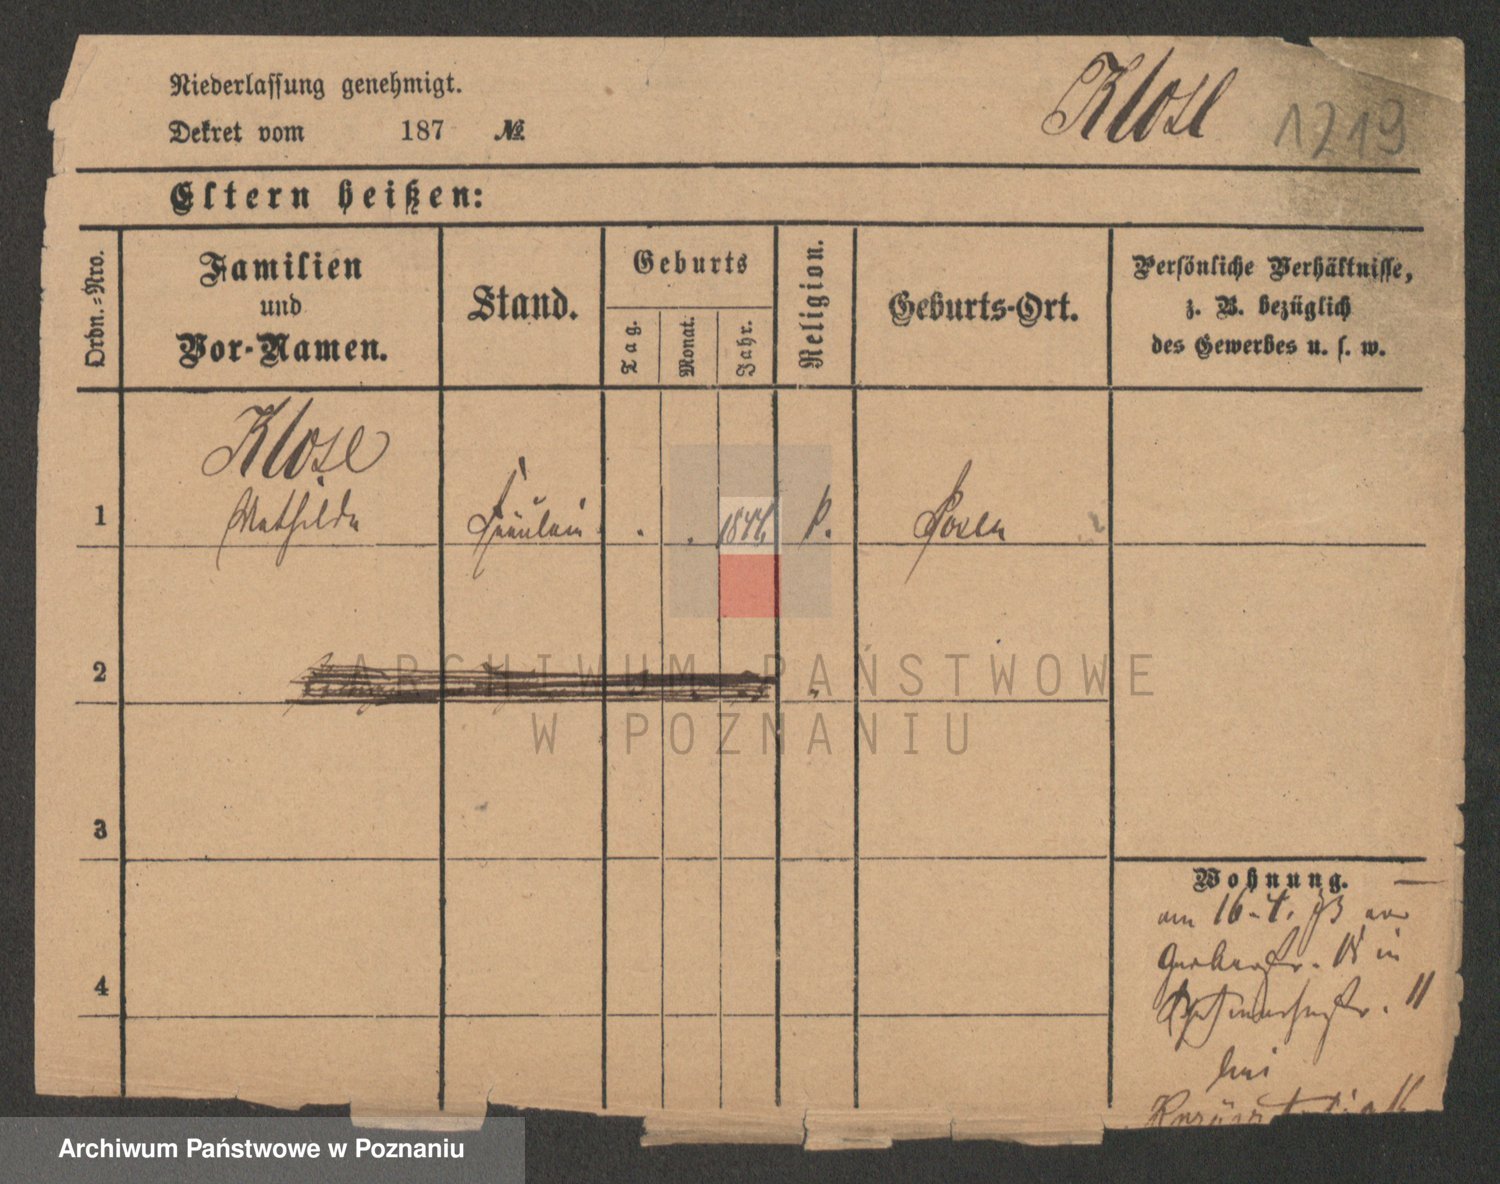 Niederlassung genehmigt.
Dekret vom 187 №
Klose 1219
Eltern heißen:
Ordn.-Nro.
Familien
und
Vor-Namen.
Stand.
Geburts
Tag.
Monat.
Jahr.
Religion.
Geburts-Ort.
Persönliche Verhältnisse,
z. B. bezüglich
des Gewerbes u. s. w.
Klose
1 Mathilde Fräulein . . 1844 Posen
2
3
4
Wohnung.
am 16-4. 73
in
11
bei
ARCHIWUM PAŃSTWOWE
W POZNANIU
Archiwum Państwowe w Poznaniu